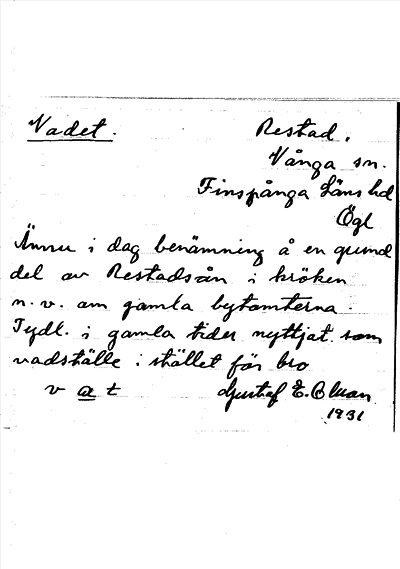 Vadet.
Restad.
Vånga sn.
Finspånga läns hd
Ögl
Ännu i dag benämning å en grund
del av Restadsån i kröken
n.v. om gamla bytomterna.
Tydl. i gamla tider nyttjat som
vadställe i stället för bro
v a t
Gustaf E. Bluan
1931